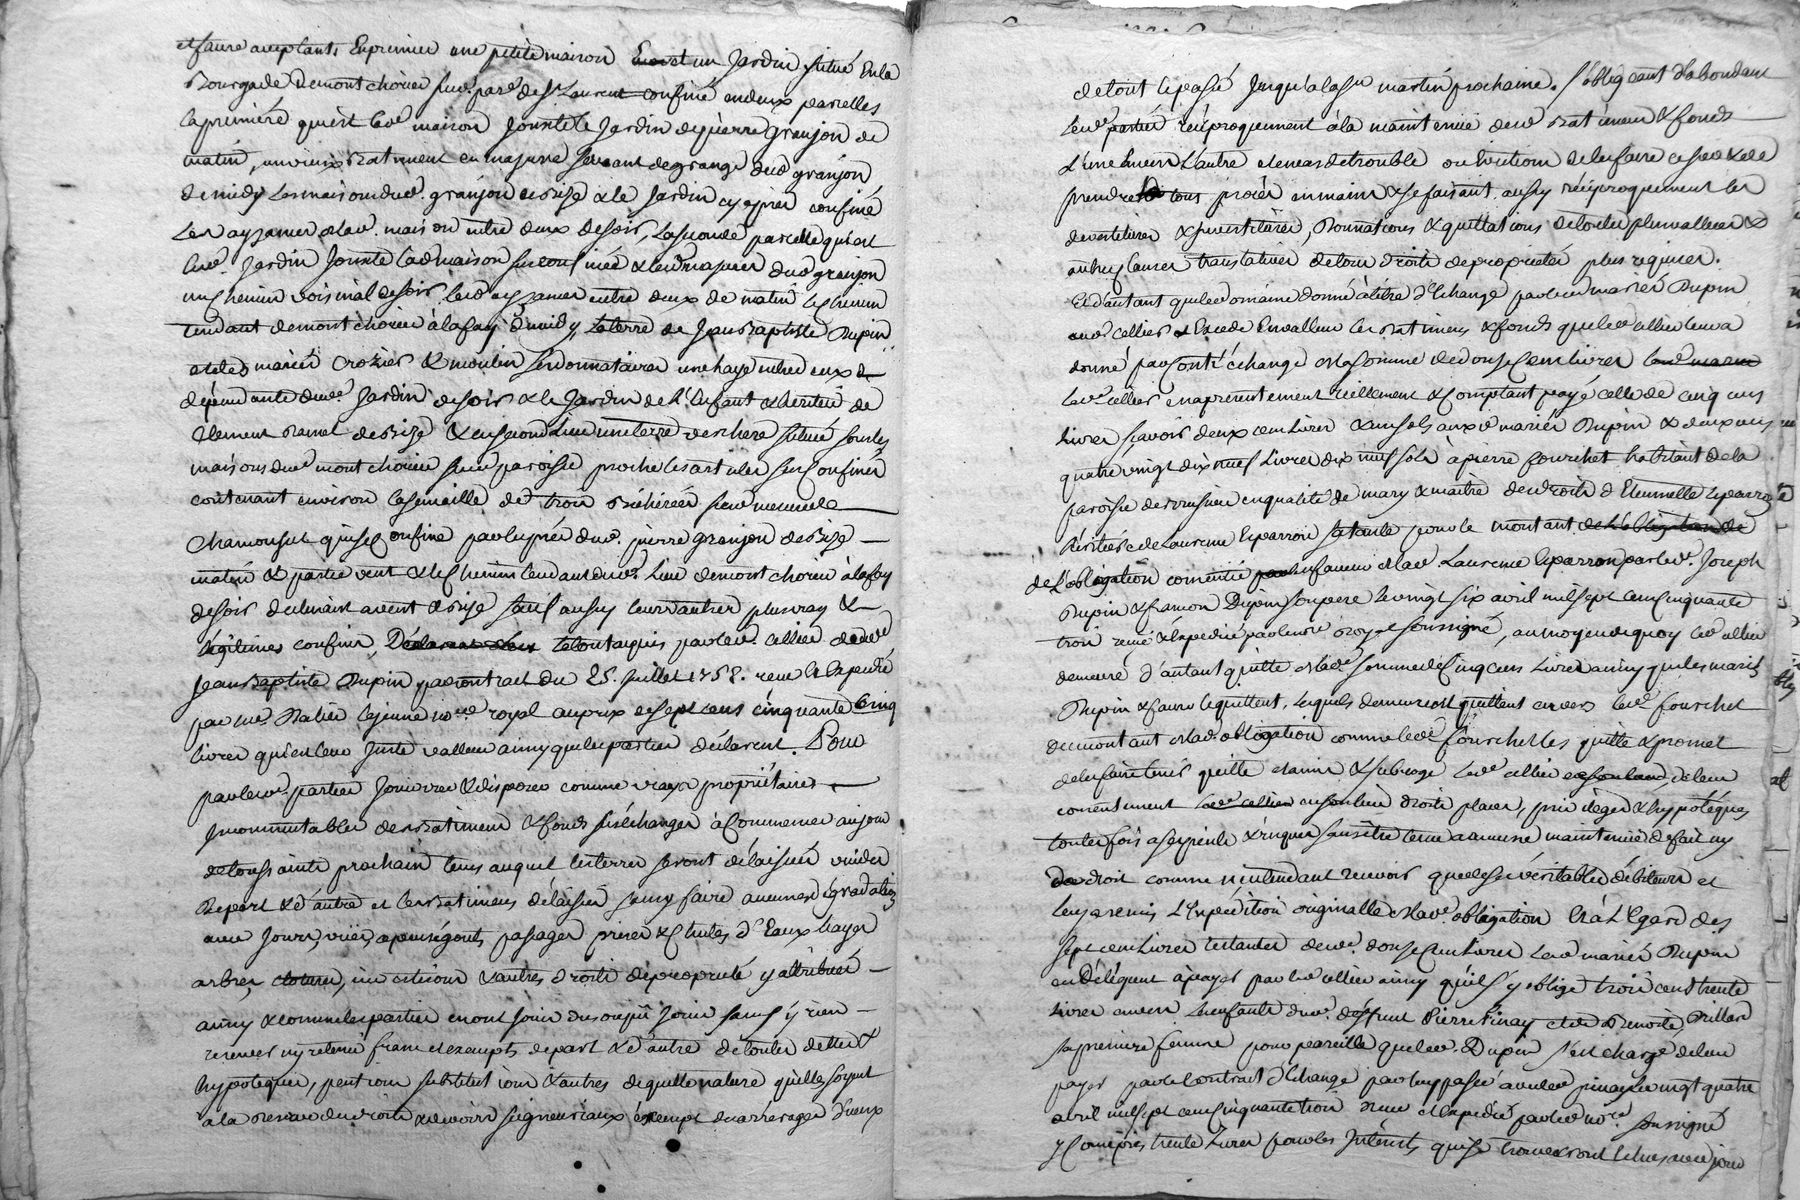 et faure acceptants En premier une petite maison et un Jardin situé En la
Bourgade de montchoien sud. par. de St Laurent confiné en deux parcelles
la premiere qui est lad. maison Jouxte le Jardin de pierre granjon de
matin, un vieux Batiment en masure servant de grange dud granjon
de midy Les maison dud. granjon de Bize & le Jardin cy après confiné
Les ayzances de lad. maison entre deux de soir, La seconde parcelle qui est
led. Jardin Jouxte lad maison sus confinée & les masures dud granjon
un chemin voisinal de soir lesd ayzances entre deux de matin le chemin
tendant de montchoien à lafay de midy, la terre de Jean Baptiste Dupin
et des mariés Crozier & moulin ses donnataires une haye entre eux
dépendante dud. Jardin de soir & le Jardin de l'Enfant & héritier de
Clement Bannel de Bize & en second Lieu une terre verchere située sous les
maisons dud. montchoien sud paroisse proche les art sus confinés
contenant environ la semaille de trois Bichérées
Chamousset qui se confine par le pré dud. pierre granjon de Bize
matin & partie vent & le chemin tendant dud. Lieu de montchoien à lafay
de soir declinant a vent & Bize sauf aussy leurs autres plus vray &
légitimes confins, le tout acquis par led. Cellier dud
Jean Baptiste Dupin par contrat du 25. Juillet 1758. receu & Expedié
par me. Batier le jeune nore royal au prix de sept cens cinquante cinq
livres qui est leur Juste valleur ainsy que les parties déclarent. Pour
par lesd. parties Jouir user & disposer comme vrays propriétaires
Jncommutables des Batimens & fonds sus échangés à Commencer au jour
de toussaints prochain tems auquel les terres seront délaissées vuides
de part & d'autre et les Batimens délaissés sans y faire aucunes dégradations
avec Jours, vües, agouts, passages, prises & chutes d'Eaux hayes
arbres, & autres droits de propriété y attribués
ainsy & comme les parties en ont Joui du ou pû Jouir sans y rien
reserver ny retenir franc et exempts de part & d'autre de toutes dettes
hypoteques, pensions substitutions & autres de quelle nature qu'elles soyent
à la reserve des droits & devoirs seigneuriaux exempt d'arrérages d'ceux
de tout le passé Jusqu'a la St martin prochaine. s'obligeant d'abondant
lesd parties réciproquement à la maintenüe desd Batimens & fonds
L'une Envers L'autre et en cas de trouble ou Evictions de les faire cesser & de
prendre tous procès en main & se faisant aussy réciproquement les
devestitures & investitures, Donnations & quittations de toutes plusvalleurs &
autres clauses translatives de tous droits de propriétés plus requises.
Et d'autant que le domaine donné à titre d'Echange par lesd mariés Dupin
aud. cellier Excede En valleur les Batimens & fonds que led cellier leur a
donné par contr'échange de la somme de douze cens livres
led. cellier en a présentement réellement & Comptant payé celle de cinq cens
livres sçavoir deux cens livres & un sols auxd mariés Dupin & deux cens
quatre vingt dix neuf livres dix neuf sols à pierre fourchet habitant de la
paroisse de Brussieu en qualité de mary & maitre des droits d'Etiennette Eparron
héritiere de Laurence Eparron sa tante pour le montant
de l'obligation consentie en faveur de lad. Laurence Eparron par led. Joseph
Dupin & francois Dupin son pere le vingt six avril mil sept cens cinquante
trois receu & Expedié par le nore royal soussigné, au moyen de quoy led cellier
demeure d'autant quitte de lad. somme de Cinq cens Livres ainsy que les mariés
Dupin & faure le quittent, lesquels demeurent quittent envers led. fourchet
du montant de lad obligation comme led. fourchet les quitte & promet
de les faire tenir quitte & subroge led. cellier de leur
consentement en son lieu droits places, privileges & hypotéques
toutes fois a ses perils & risques sans être tenu a aucune maintenüe de fait ny
de droit comme n'entendant recevoir que de ses véritables débiteurs et
Luy a remis L'Expédition originalle de lad. obligation Et à L'Egard des
sept cens livres restantes desd. douze Cens livres lesd mariés Dupin
en Déléguent à payer par led cellier ainsy qu'il s'y oblige trois cens trente
livres envers les enfants dud. deffunt Pierre Pinay et de Benoite Brillard
sa premiere femme pour pareille que led. Dupin s'est chargé de leur
payer par le Contract d'Echange par luy passé avec led pinay le vingt quatre
avril mil sept cens cinquante trois receu & Expedié par led nore. soussigné
y Compris trente Livres pour les Intérêts qui se trouveront échus aud jour